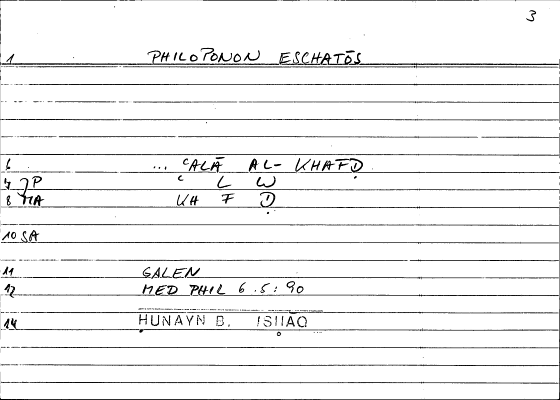 3
1 PHILOPONON ESCHATŌS
6 ... ʿALĀ AL-KHAFḌ
7 JP ʿ L W
8 MA KH F Ḍ
10 SA
11 GALEN
12 MED PHIL 6.5:90
14 HUNAYN B. ISḤAQ